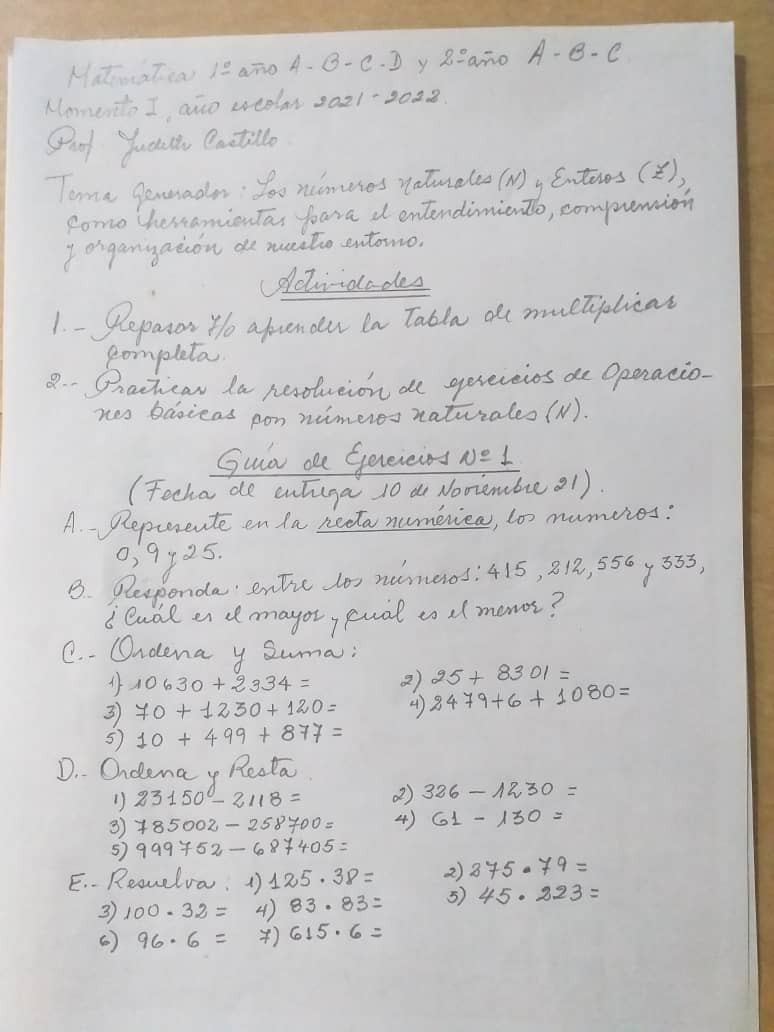 Matemática 1º año A - B - C - D y 2º año A - B - C
Momento I, año escolar 2021 - 2022.
Prof. Judith Castillo
Tema generador: Los números naturales (N) y Enteros (Z),
como herramientas para el entendimiento, comprensión
y organización de nuestro entorno.
Actividades
1.- Repasar y/o aprender la Tabla de multiplicar
completa.
2.- Practicar la resolución de ejercicios de Operacio-
nes básicas con números naturales (N).
Guía de Ejercicios Nº 1
(Fecha de entrega 10 de Noviembre 21).
A.- Represente en la recta numérica, los numeros:
0, 9 y 25.
B. Responda: entre los números: 415, 212, 556 y 333,
¿Cuál es el mayor y cuál es el menor?
C.- Ordena y Suma:
1) 10630 + 2334 = 2) 25 + 8301 =
3) 70 + 1230 + 120 = 4) 2479 + 6 + 1080 =
5) 10 + 499 + 877 =
D.- Ordena y Resta.
1) 23150 - 2118 = 2) 326 - 1230 =
3) 785002 - 258700 = 4) 61 - 130 =
5) 999752 - 687405 =
E.- Resuelva: 1) 125 · 38 = 2) 275 · 79 =
3) 100 · 32 = 4) 83 · 83 = 5) 45 · 223 =
6) 96 · 6 = 7) 615 · 6 =